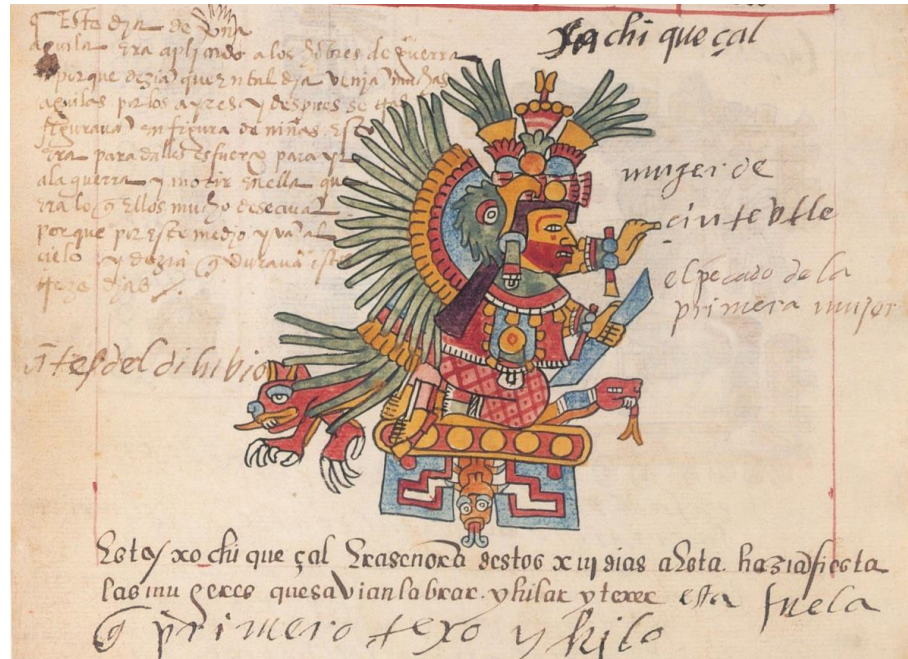 ¶ Este dia de Una
aguila Era aplicado a los hōbres de guerra
porque dezia) que en tal dia venja) muchas
aguilas por los ayres y despues se
figurava) en figura de niñas Es
Era para dalles esfuerzo para y
ala guerra y morir en ella que
Era lo q Ellos mucho deseava
porque por este medjo yva al
cielo y dezia q durava
treze dias
xochi queçal
muger de
çinteutle
el pecado de la
primera mujer
ātes del diluvio
Esta xochi queçal Era señora destos xiij dias a Esta hazia) fiesta
las mugeres que savian labrar y hilar y texer esta fue la
q primero texo y hilo